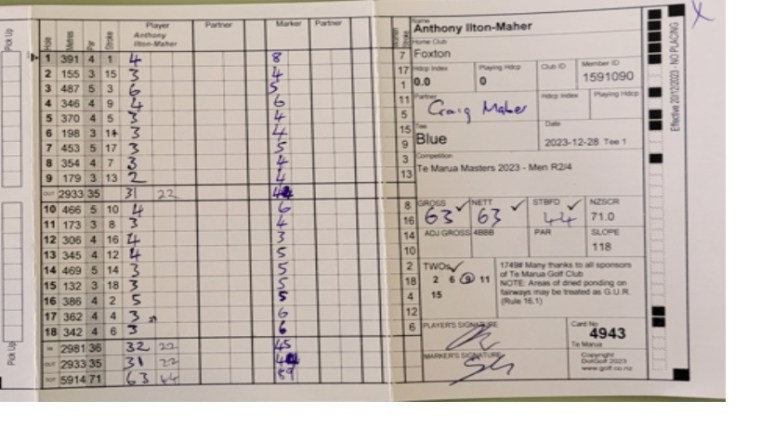 Pick Up
Hole Metres Par Stroke Player Partner Marker Partner
Anthony
Ilton-Maher
1 391 4 1 4 8
2 155 3 15 3 4
3 487 5 3 6 5
4 346 4 9 4 6
5 370 4 5 3 4
6 198 3 11 3 4
7 453 5 17 3 5
8 354 4 7 3 4
9 179 3 13 2 4
OUT 2933 35 31 22
10 466 5 10 4 6
11 173 3 8 3 4
12 306 4 16 4 3
13 345 4 12 4 5
14 469 5 14 3 5
15 132 3 18 3 5
16 386 4 2 5 5
17 362 4 4 3 6
18 342 4 6 3 6
IN 2981 36 32 22 45
OUT 2933 35 31 22
TOT 5914 71 63 44 89
Pick Up
Name
Anthony Ilton-Maher
Home Club
Foxton
Hdcp Index Playing Hdcp Club ID Member ID
0.0 0 1591090
Partner Hdcp Index Playing Hdcp
Craig Maher
Tee Date
Blue 2023-12-28 Tee 1
Competition
Te Marua Masters 2023 - Men R2/4
GROSS NETT STBFD NZSCR
63 63 44 71.0
ADJ GROSS 4BBB PAR SLOPE
118
TWOs
2 6 9 11
15
1749# Many thanks to all sponsors
of Te Marua Golf Club
NOTE: Areas of dried ponding on
fairways may be treated as G.U.R.
(Rule 16.1)
PLAYER'S SIGNATURE
MARKER'S SIGNATURE
Card No
4943
Te Marua
Copyright
DotGolf 2023
www.golf.co.nz
7
17
1
11
5
15
9
3
13
8
16
14
10
2
18
4
12
6
Effective 20/12/2023 - NO PLACING
X